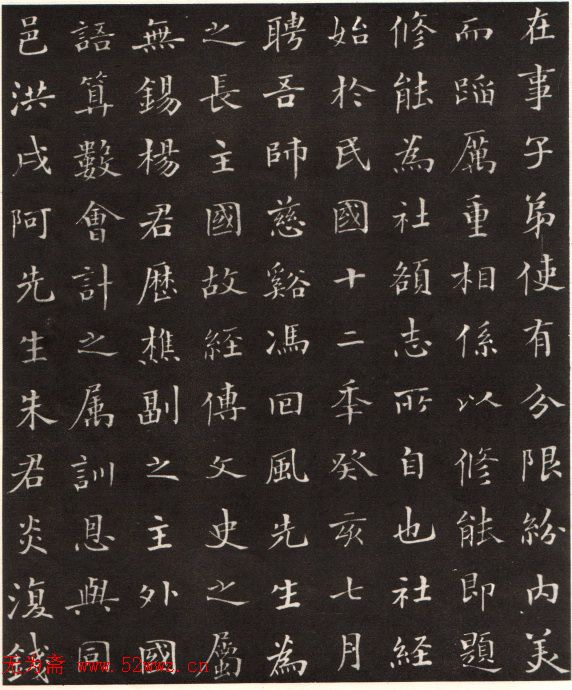 在事子弟使有分限紛内美
而蹈厲重相係以修能即題
修能為社額志所自也社経
始於民國十二秊癸亥七月
聘吾師慈谿馮回風先生為
之長主國故経傳文史之屬
無錫楊君歷樵副之主外國
語算數會計之属訓恩與同
邑洪戌阿先生朱君炎復錢
无为斋 www.52wwc.cn